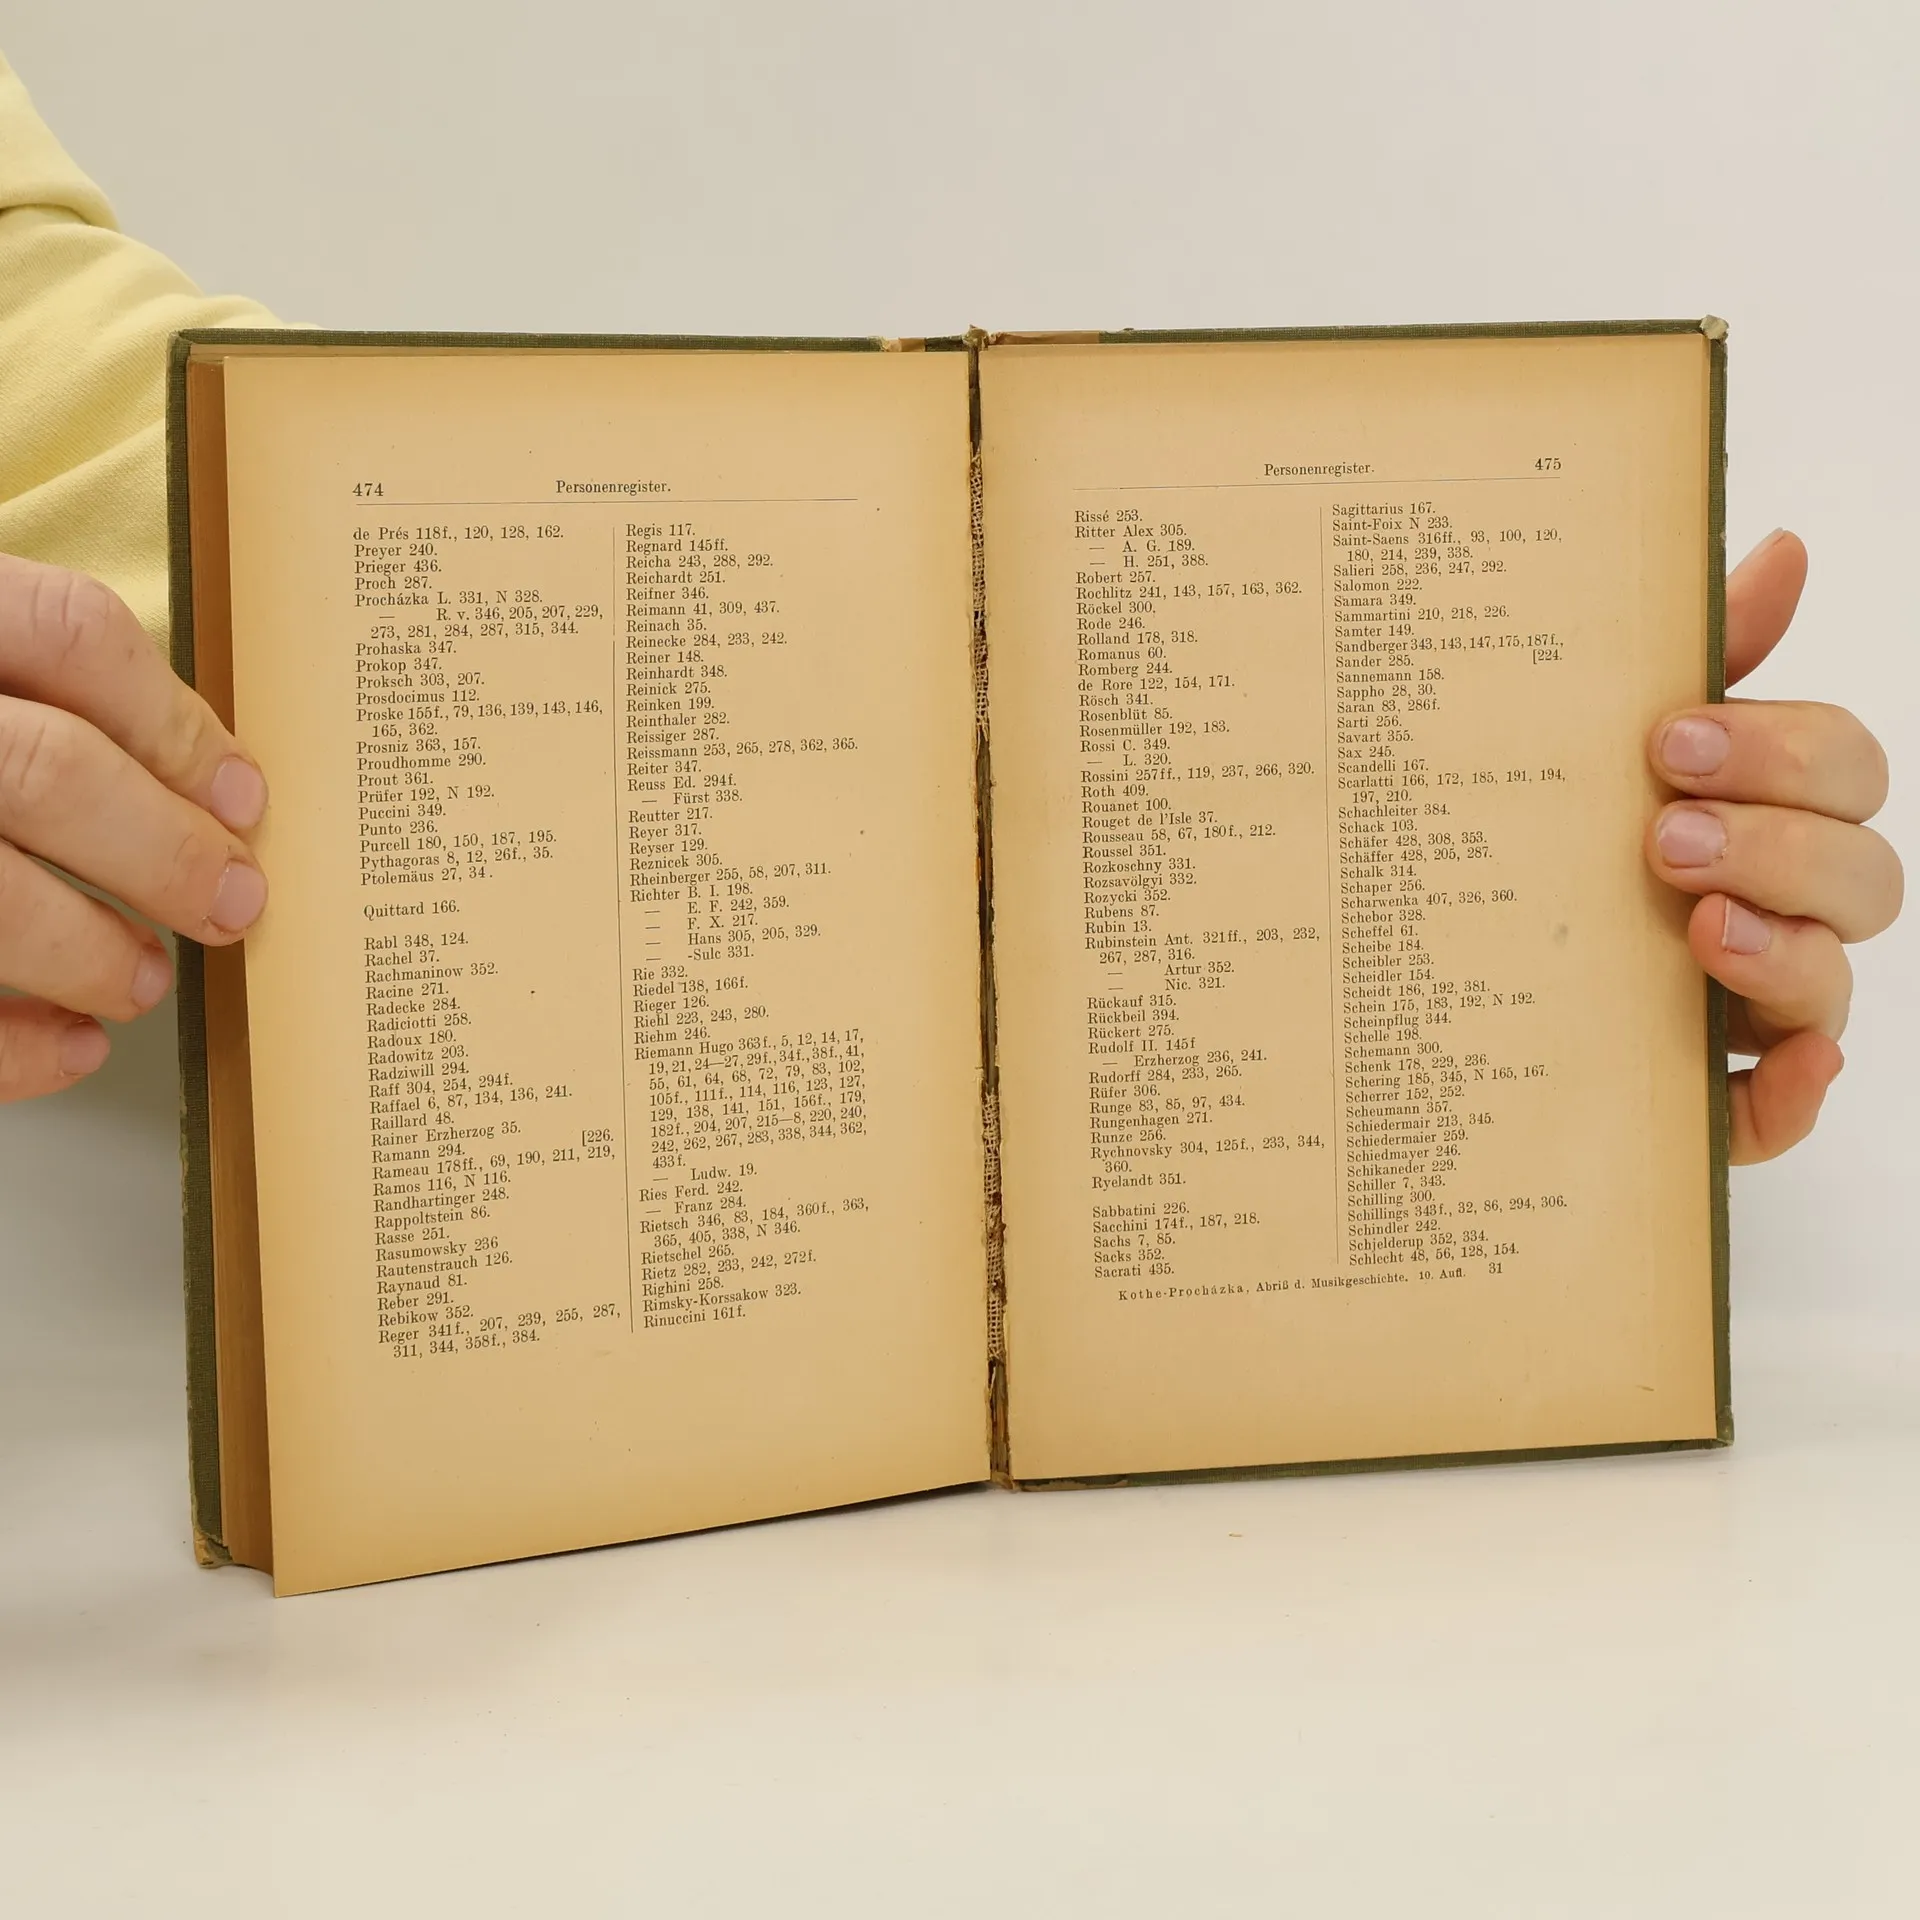 474
Personenregister.
de Prés 118f., 120, 128, 162.
Preyer 240.
Prieger 436.
Proch 287.
Procházka L. 331, N 328.
— R. v. 346, 205, 207, 229,
273, 281, 284, 287, 315, 344.
Prohaska 347.
Prokop 347.
Proksch 303, 207.
Prosdocimus 112.
Proske 155f., 79, 136, 139, 143, 146,
165, 362.
Prosniz 363, 157.
Proudhomme 290.
Prout 361.
Prüfer 192, N 192.
Puccini 349.
Punto 236.
Purcell 180, 150, 187, 195.
Pythagoras 8, 12, 26f., 35.
Ptolemäus 27, 34.
Quittard 166.
Rabl 348, 124.
Rachel 37.
Rachmaninow 352.
Racine 271.
Radecke 284.
Radiciotti 258.
Radoux 180.
Radowitz 203.
Radziwill 294.
Raff 304, 254, 294f.
Raffael 6, 87, 134, 136, 241.
Raillard 48.
Rainer Erzherzog 35.
Ramann 294. [226.
Rameau 178ff., 69, 190, 211, 219,
Ramos 116, N 116.
Randhartinger 248.
Rappoltstein 86.
Rasse 251.
Rasumowsky 236
Rautenstrauch 126.
Raynaud 81.
Reber 291.
Rebikow 352.
Reger 341f., 207, 239, 255, 287,
311, 344, 358f., 384.
Regis 117.
Regnard 145ff.
Reicha 243, 288, 292.
Reichardt 251.
Reifner 346.
Reimann 41, 309, 437.
Reinach 35.
Reinecke 284, 233, 242.
Reiner 148.
Reinhardt 348.
Reinick 275.
Reinken 199.
Reinthaler 282.
Reissiger 287.
Reissmann 253, 265, 278, 362, 365.
Reiter 347.
Reuss Ed. 294f.
— Fürst 338.
Reutter 217.
Reyer 317.
Reyser 129.
Reznicek 305.
Rheinberger 255, 58, 207, 311.
Richter B. I. 198.
— E. F. 242, 359.
— F. X. 217.
— Hans 305, 205, 329.
— -Sulc 331.
Rie 332.
Riedel 138, 166f.
Rieger 126.
Riehl 223, 243, 280.
Riehm 246.
Riemann Hugo 363f., 5, 12, 14, 17,
19, 21, 24—27, 29f., 34f., 38f., 41,
55, 61, 64, 68, 72, 79, 83, 102,
105f., 111f., 114, 116, 123, 127,
129, 138, 141, 151, 156f., 179,
182f., 204, 207, 215—8, 220, 240,
242, 262, 267, 283, 338, 344, 362,
433f.
— Ludw. 19.
Ries Ferd. 242.
— Franz 284.
Rietsch 346, 83, 184, 360f., 363,
365, 405, 338, N 346.
Rietschel 265.
Rietz 282, 233, 242, 272f.
Righini 258.
Rimsky-Korssakow 323.
Rinuccini 161f.
Personenregister.
475
Rissé 253.
Ritter Alex 305.
— A. G. 189.
— H. 251, 388.
Robert 257.
Rochlitz 241, 143, 157, 163, 362.
Röckel 300,
Rode 246.
Rolland 178, 318.
Romanus 60.
Romberg 244.
de Rore 122, 154, 171.
Rösch 341.
Rosenblüt 85.
Rosenmüller 192, 183.
Rossi C. 349.
— L. 320.
Rossini 257ff., 119, 237, 266, 320.
Roth 409.
Rouanet 100.
Rouget de l'Isle 37.
Rousseau 58, 67, 180f., 212.
Roussel 351.
Rozkoschny 331.
Rozsavölgyi 332.
Rozycki 352.
Rubens 87.
Rubin 13.
Rubinstein Ant. 321ff., 203, 232,
267, 287, 316.
— Artur 352.
— Nic. 321.
Rückauf 315.
Rückbeil 394.
Rückert 275.
Rudolf II. 145f
— Erzherzog 236, 241.
Rudorff 284, 233, 265.
Rüfer 306.
Runge 83, 85, 97, 434.
Rungenhagen 271.
Runze 256.
Rychnovsky 304, 125f., 233, 344,
360.
Ryelandt 351.
Sabbatini 226.
Sacchini 174f., 187, 218.
Sachs 7, 85.
Sacks 352.
Sacrati 435.
Sagittarius 167.
Saint-Foix N 233.
Saint-Saens 316ff., 93, 100, 120,
180, 214, 239, 338.
Salieri 258, 236, 247, 292.
Salomon 222.
Samara 349.
Sammartini 210, 218, 226.
Samter 149.
Sandberger 343, 143, 147, 175, 187f.,
Sander 285. [224.
Sannemann 158.
Sappho 28, 30.
Saran 83, 286f.
Sarti 256.
Savart 355.
Sax 245.
Scandelli 167.
Scarlatti 166, 172, 185, 191, 194,
197, 210.
Schachleiter 384.
Schack 103.
Schäfer 428, 308, 353.
Schäffer 428, 205, 287.
Schalk 314.
Schaper 256.
Scharwenka 407, 326, 360.
Schebor 328.
Scheffel 61.
Scheibe 184.
Scheibler 253.
Scheidler 154.
Scheidt 186, 192, 381.
Schein 175, 183, 192, N 192.
Scheinpflug 344.
Schelle 198.
Schemann 300.
Schenk 178, 229, 236.
Schering 185, 345, N 165, 167.
Scherrer 152, 252.
Scheumann 357.
Schiedermair 213, 345.
Schiedermaier 259.
Schiedmayer 246.
Schikaneder 229.
Schiller 7, 343.
Schilling 300.
Schillings 343f., 32, 86, 294, 306.
Schindler 242.
Schjelderup 352, 334.
Schlecht 48, 56, 128, 154.
Kothe-Procházka, Abriß d. Musikgeschichte. 10. Aufl. 31